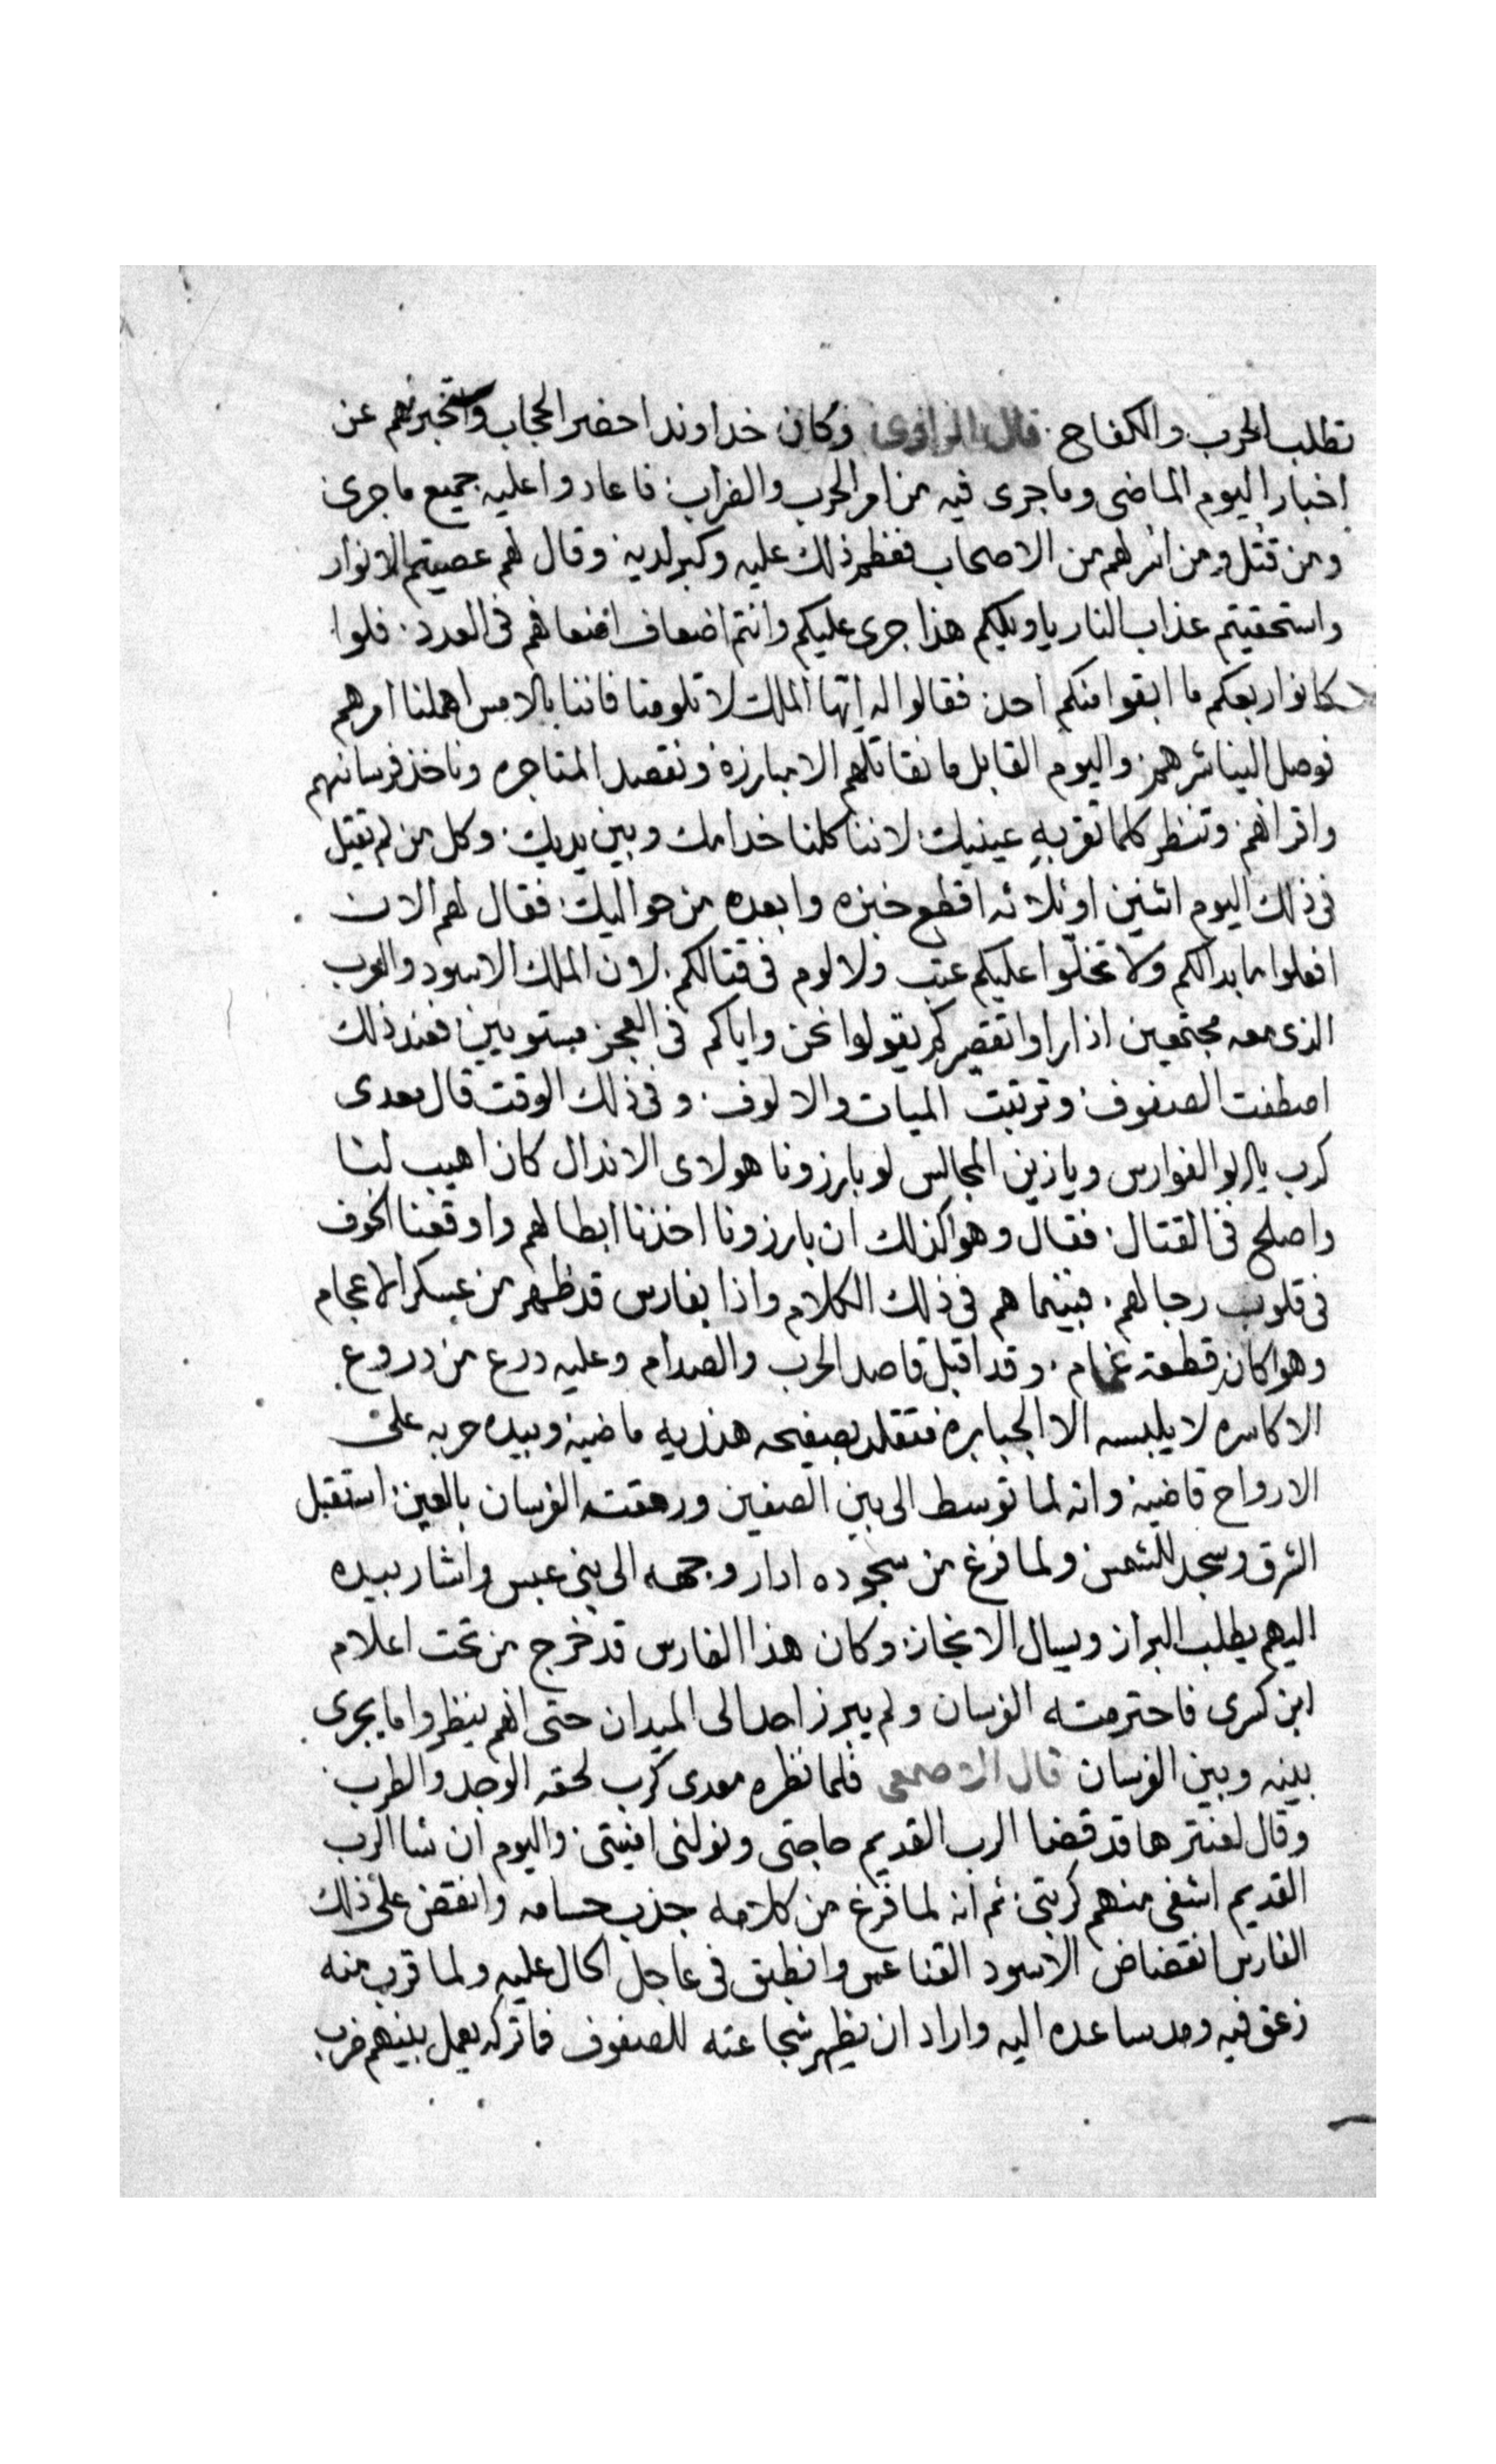 تطلب الحرب والكفاح. قال الراوى وكان خداوند احضر الحجاب واستخبرهم عن
اخبار اليوم الماضى وما جرى فيه من امر الحرب والضراب. فاعادوا عليه جميع ما جرى
ومن قتل ومن اسر لهم من الاصحاب فعظم ذلك عليه وكبر لديه وقال لهم عصيتم الانوار
واستحقيتم عذاب النار يا ويلكم هذا جرى عليكم وانتم اضعاف اضعافهم فى العدد. فلوا
كانوا ربعكم ما ابقوا منكم احد فقالوا له ايها الملك لا تلومنا فاننا بالامس اهملنا امرهم
فوصل الينا شرهم واليوم القابل ما نقاتلهم الا مبارزة ونقصد المناجره وناخذ فرسانهم
واقرانهم وتنظر كلما تقر به عينيك لاننا كلنا خدامك وبين يديك. وكل من لم يقتل
فى ذلك اليوم اثنين او ثلاثه اقطع خبزه وابعده من حواليك فقال لهم الان
افعلوا ما بدالكم ولا تخلوا عليكم عتب ولا لوم فى قتالكم. لان الملك الاسود والعرب
الذى معه مجتمعين اذا راوا تقصيركم يقولوا نحن واياكم فى العجز مستويين فعند ذلك
اصطفت الصفوف وترتبت الميات والالوف. وفى ذلك الوقت قال معدى
كرب يا ابو الفوارس ويا زين المجالس لو بارزونا هولاى الاندال كان اهيب لنا
واصلح فى القتال. فقال وهو كذلك ان بارزونا اخذنا ابطالهم واوقعنا الخوف
فى قلوب رجالهم. فبينما هم فى ذلك الكلام واذا بفارس قد ظهر من عسكر الاعجام
وهوا كان قطعة غمام. وقد اقبل قاصد الحرب والصدام وعليه درع من دروع
الاكاسره لا يلبسه الا الجبابره متقلد بصفيحه هنديه ماضيه وبيده حربه على
الارواح قاضيه وانه لما توسط الى بين الصفين ورمقته الفرسان بالعين استقبل
الشرق وسجد للشمس ولما فرغ من سجوده ادار وجهه الى بنى عبس واشار بيده
اليهم يطلب البراز ويسال الانجاز وكان هذا الفارس قد خرج من تحت اعلام
ابن كسرى فاحترمته الفرسان ولم يبرز احد الى الميدان حتى انهم ينظروا ما يجرى
بينه وبين الفرسان قال الاصمعى فلما نظره معدى كرب لحقه الوجد والطرب.
وقال لعنتر ها قد قضا الرب القديم حاجتى ونولنى امنيتى. واليوم ان شا الرب
القديم اشفى منهم كربتى. ثم انه لما فرغ من كلامه جذب حسامه وانقض على ذلك
الفارس انقضاض الاسود القناعس وانطبق فى عاجل الحال عليه ولما قرب منه
زعق فيه ومد ساعده اليه واراد ان يظهر شجاعته للصفوف فما تركه يعمل بينهم ضرب